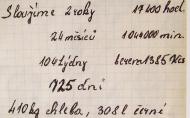 Sloužíme 2 roky 17400 hod.
24 měsíců 1044000 min.
104 týdny bereme 1385 Kčs
725 dní
410 kg chleba, 308 l černé